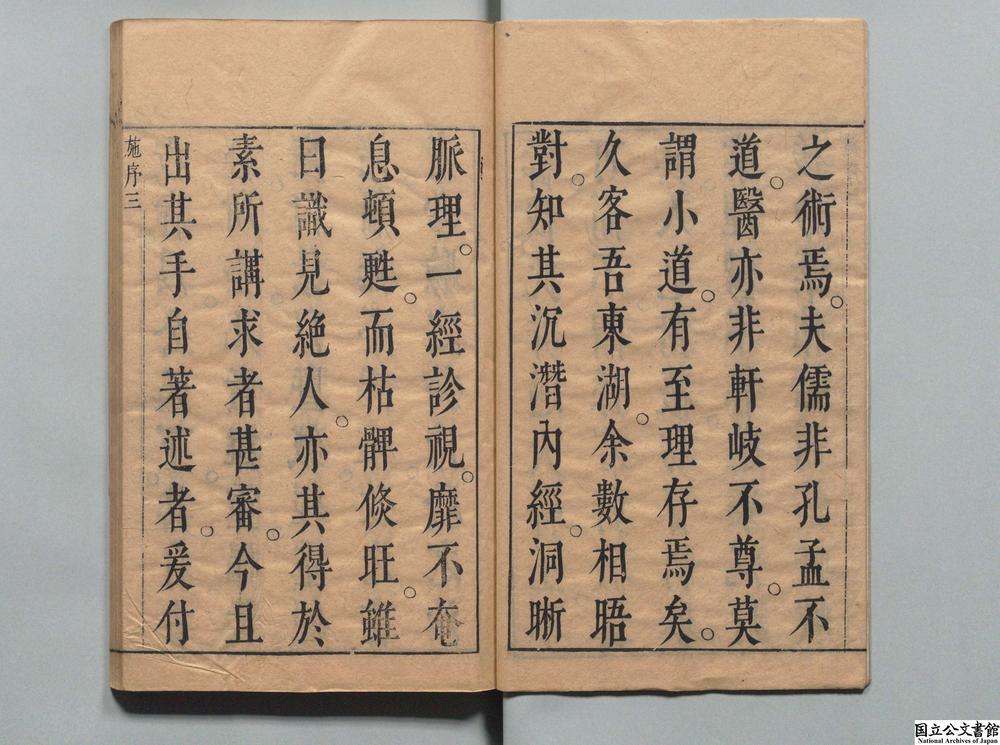 之術焉。夫儒非孔孟不
道。醫亦非軒岐不尊。莫
謂小道。有至理存焉矣。
久客吾東湖。余數相晤
對。知其沉潛內經。洞晰
脈理。一經診視。靡不奄
息頓甦。而枯髀倐旺。雖
曰識見絕人。亦其得於
素所講求者甚審。今且
出其手自著述者。爰付
施序三
国立公文書館
National Archives of Japan